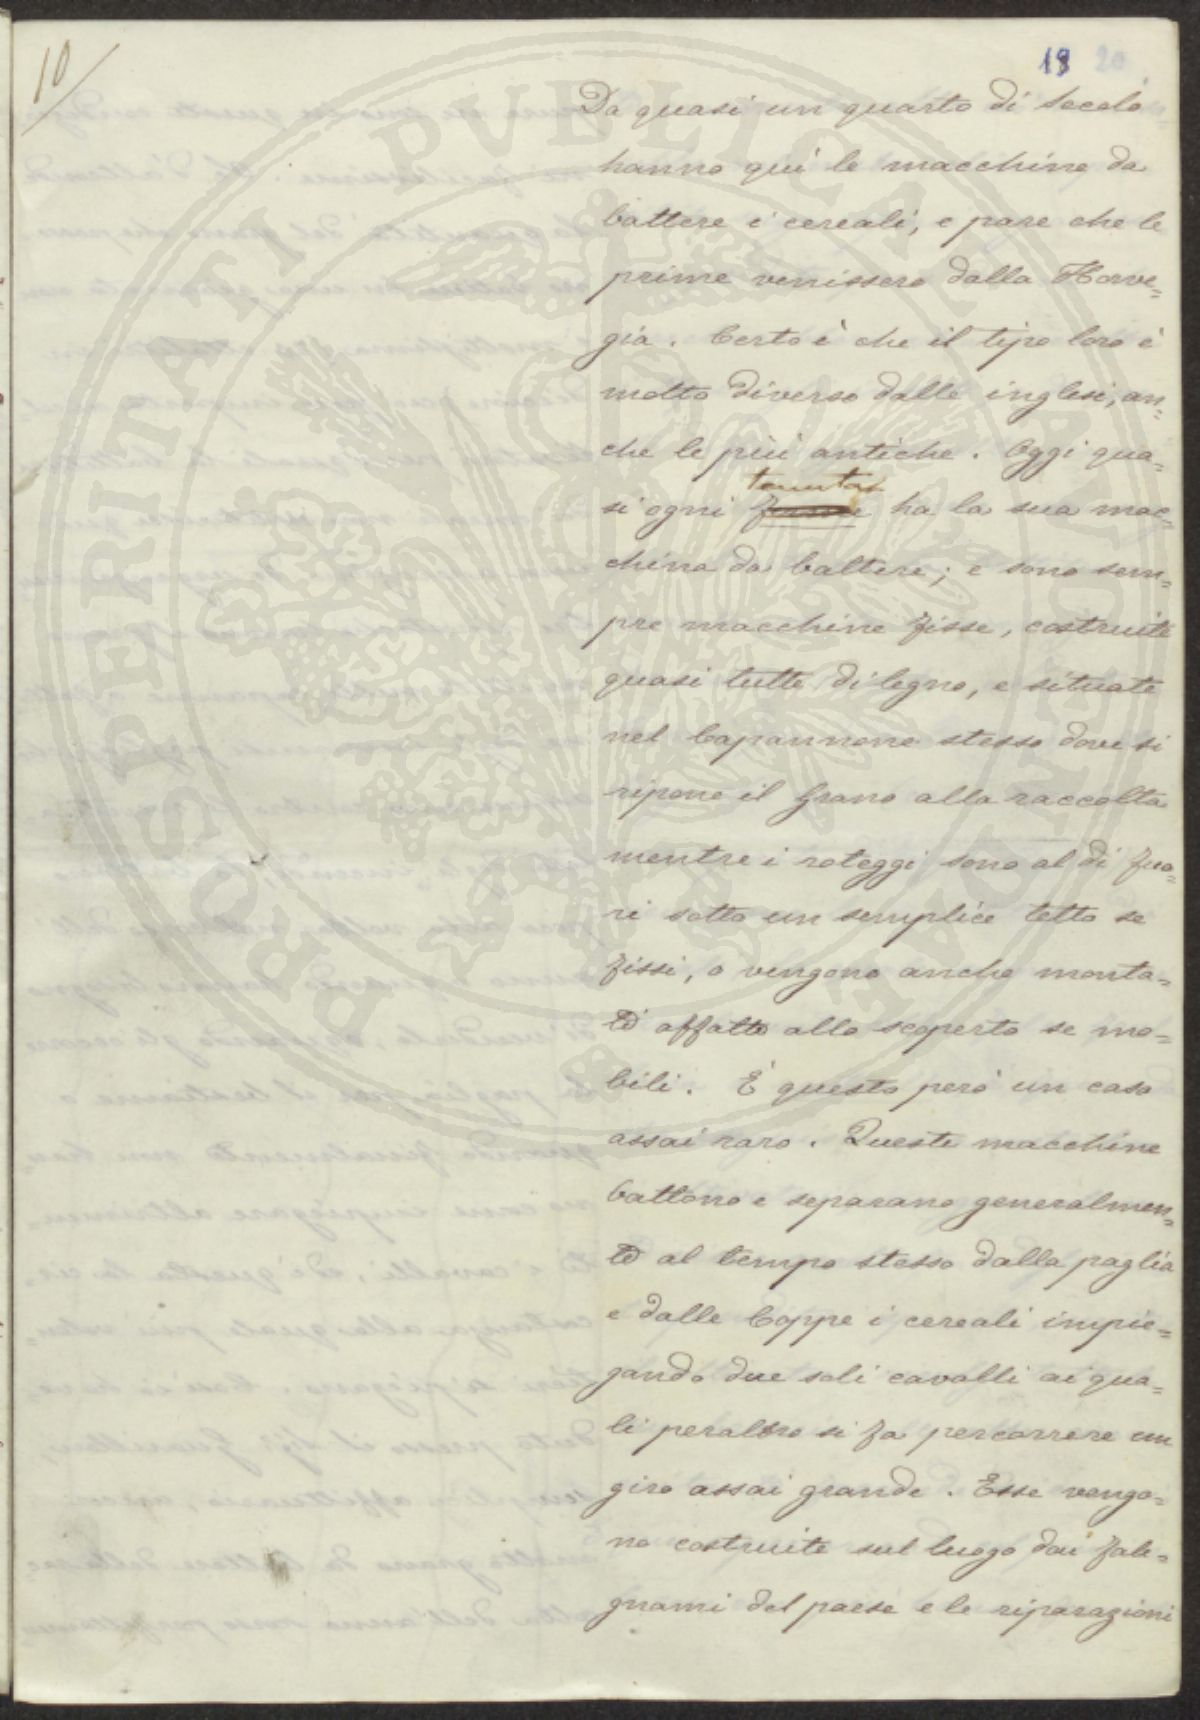 10
19 20
Da quasi un quarto di secolo
hanno qui le macchine da
battere i cereali, e pare che le
prime venissero dalla Norve=
gia. Certo è che il tipo loro è
molto diverso dalle inglesi, an=
che le più antiche. Oggi qua=
tenuta
si ogni ha la sua mac=
china da battere; e sono sem=
pre macchine fisse, costruite
quasi tutte di legno, e situate
nel Capannone stesso dove si
ripone il grano alla raccolta
mentre i roteggi sono al di fuo=
ri sotto un semplice tetto se
fissi, o vengono anche monta=
ti affatto allo scoperto se mo=
bili. È questo però un caso
assai raro. Queste macchine
battono e separano generalmen=
te al tempo stesso dalla paglia
e dalle loppe i cereali impie=
gando due soli cavalli ai qua=
li peraltro si fa percorrere un
giro assai grande. Esse vengo=
no costruite sul luogo dai fale=
gnami del paese e le riparazioni
PROSPERITATI PUBLICAE AUGENDAE